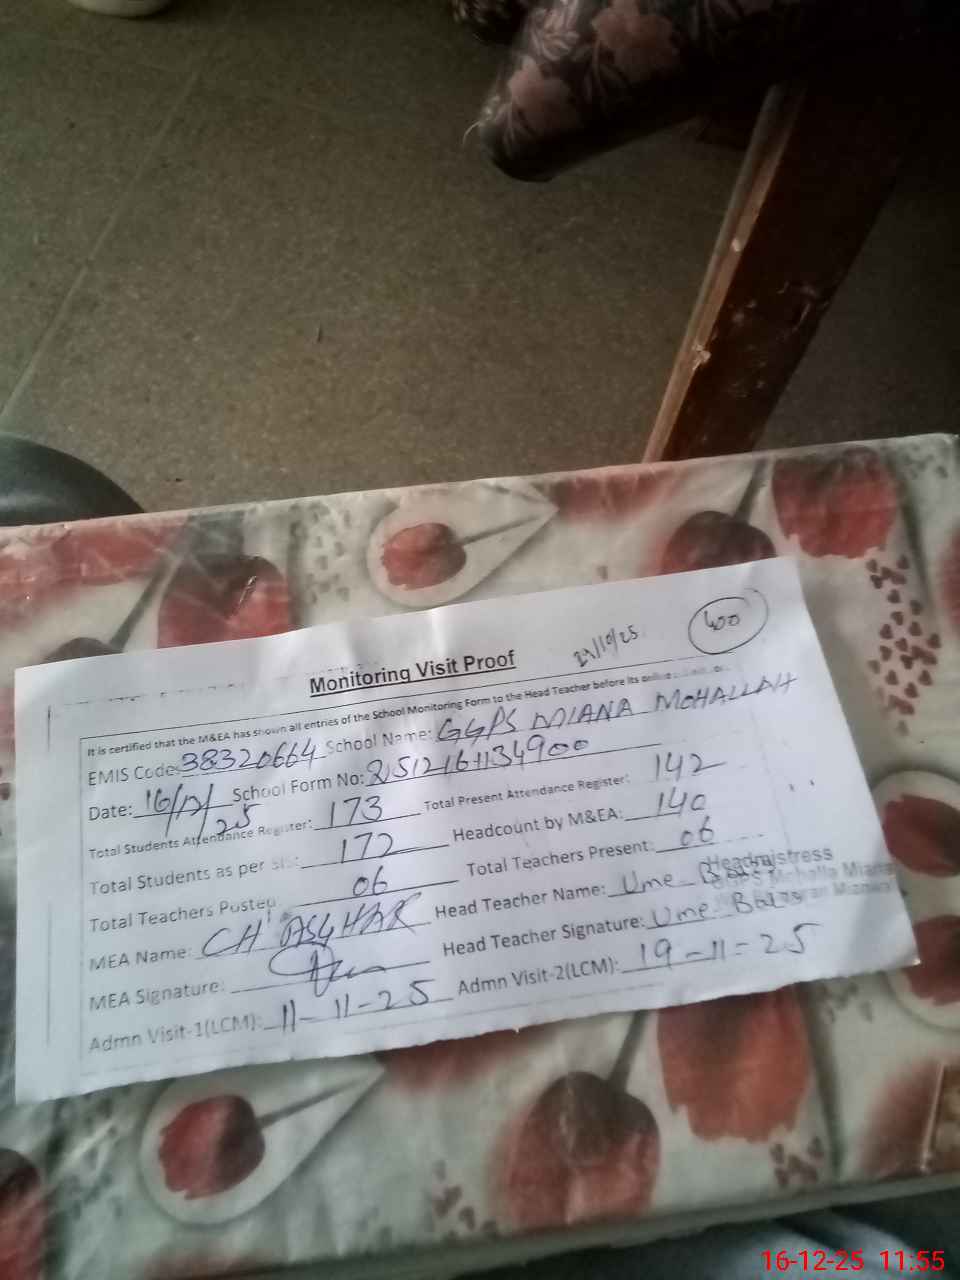 Monitoring Visit Proof 29/10/25 400
It is certified that the M&EA has shown all entries of the School Monitoring Form to the Head Teacher before its
EMIS Code: 38320664 School Name: GGPS MIANA MOHALLAH
Date: 16/12/25 School Form No:
Total Students Attendance Register: 173 Total Present Attendance Register: 142
Total Students as per SIS: 172 Headcount by M&EA: 140
Total Teachers Posted 06 Total Teachers Present: 06
MEA Name: CH ASGHAR Head Teacher Name: Ume
MEA Signature: Head Teacher Signature: Ume
Headmistress
GGPS Mohalla Miana
Admn Visit-1(LCM): 11-11-25 Admn Visit-2(LCM): 19-11-25
16-12-25 11:55